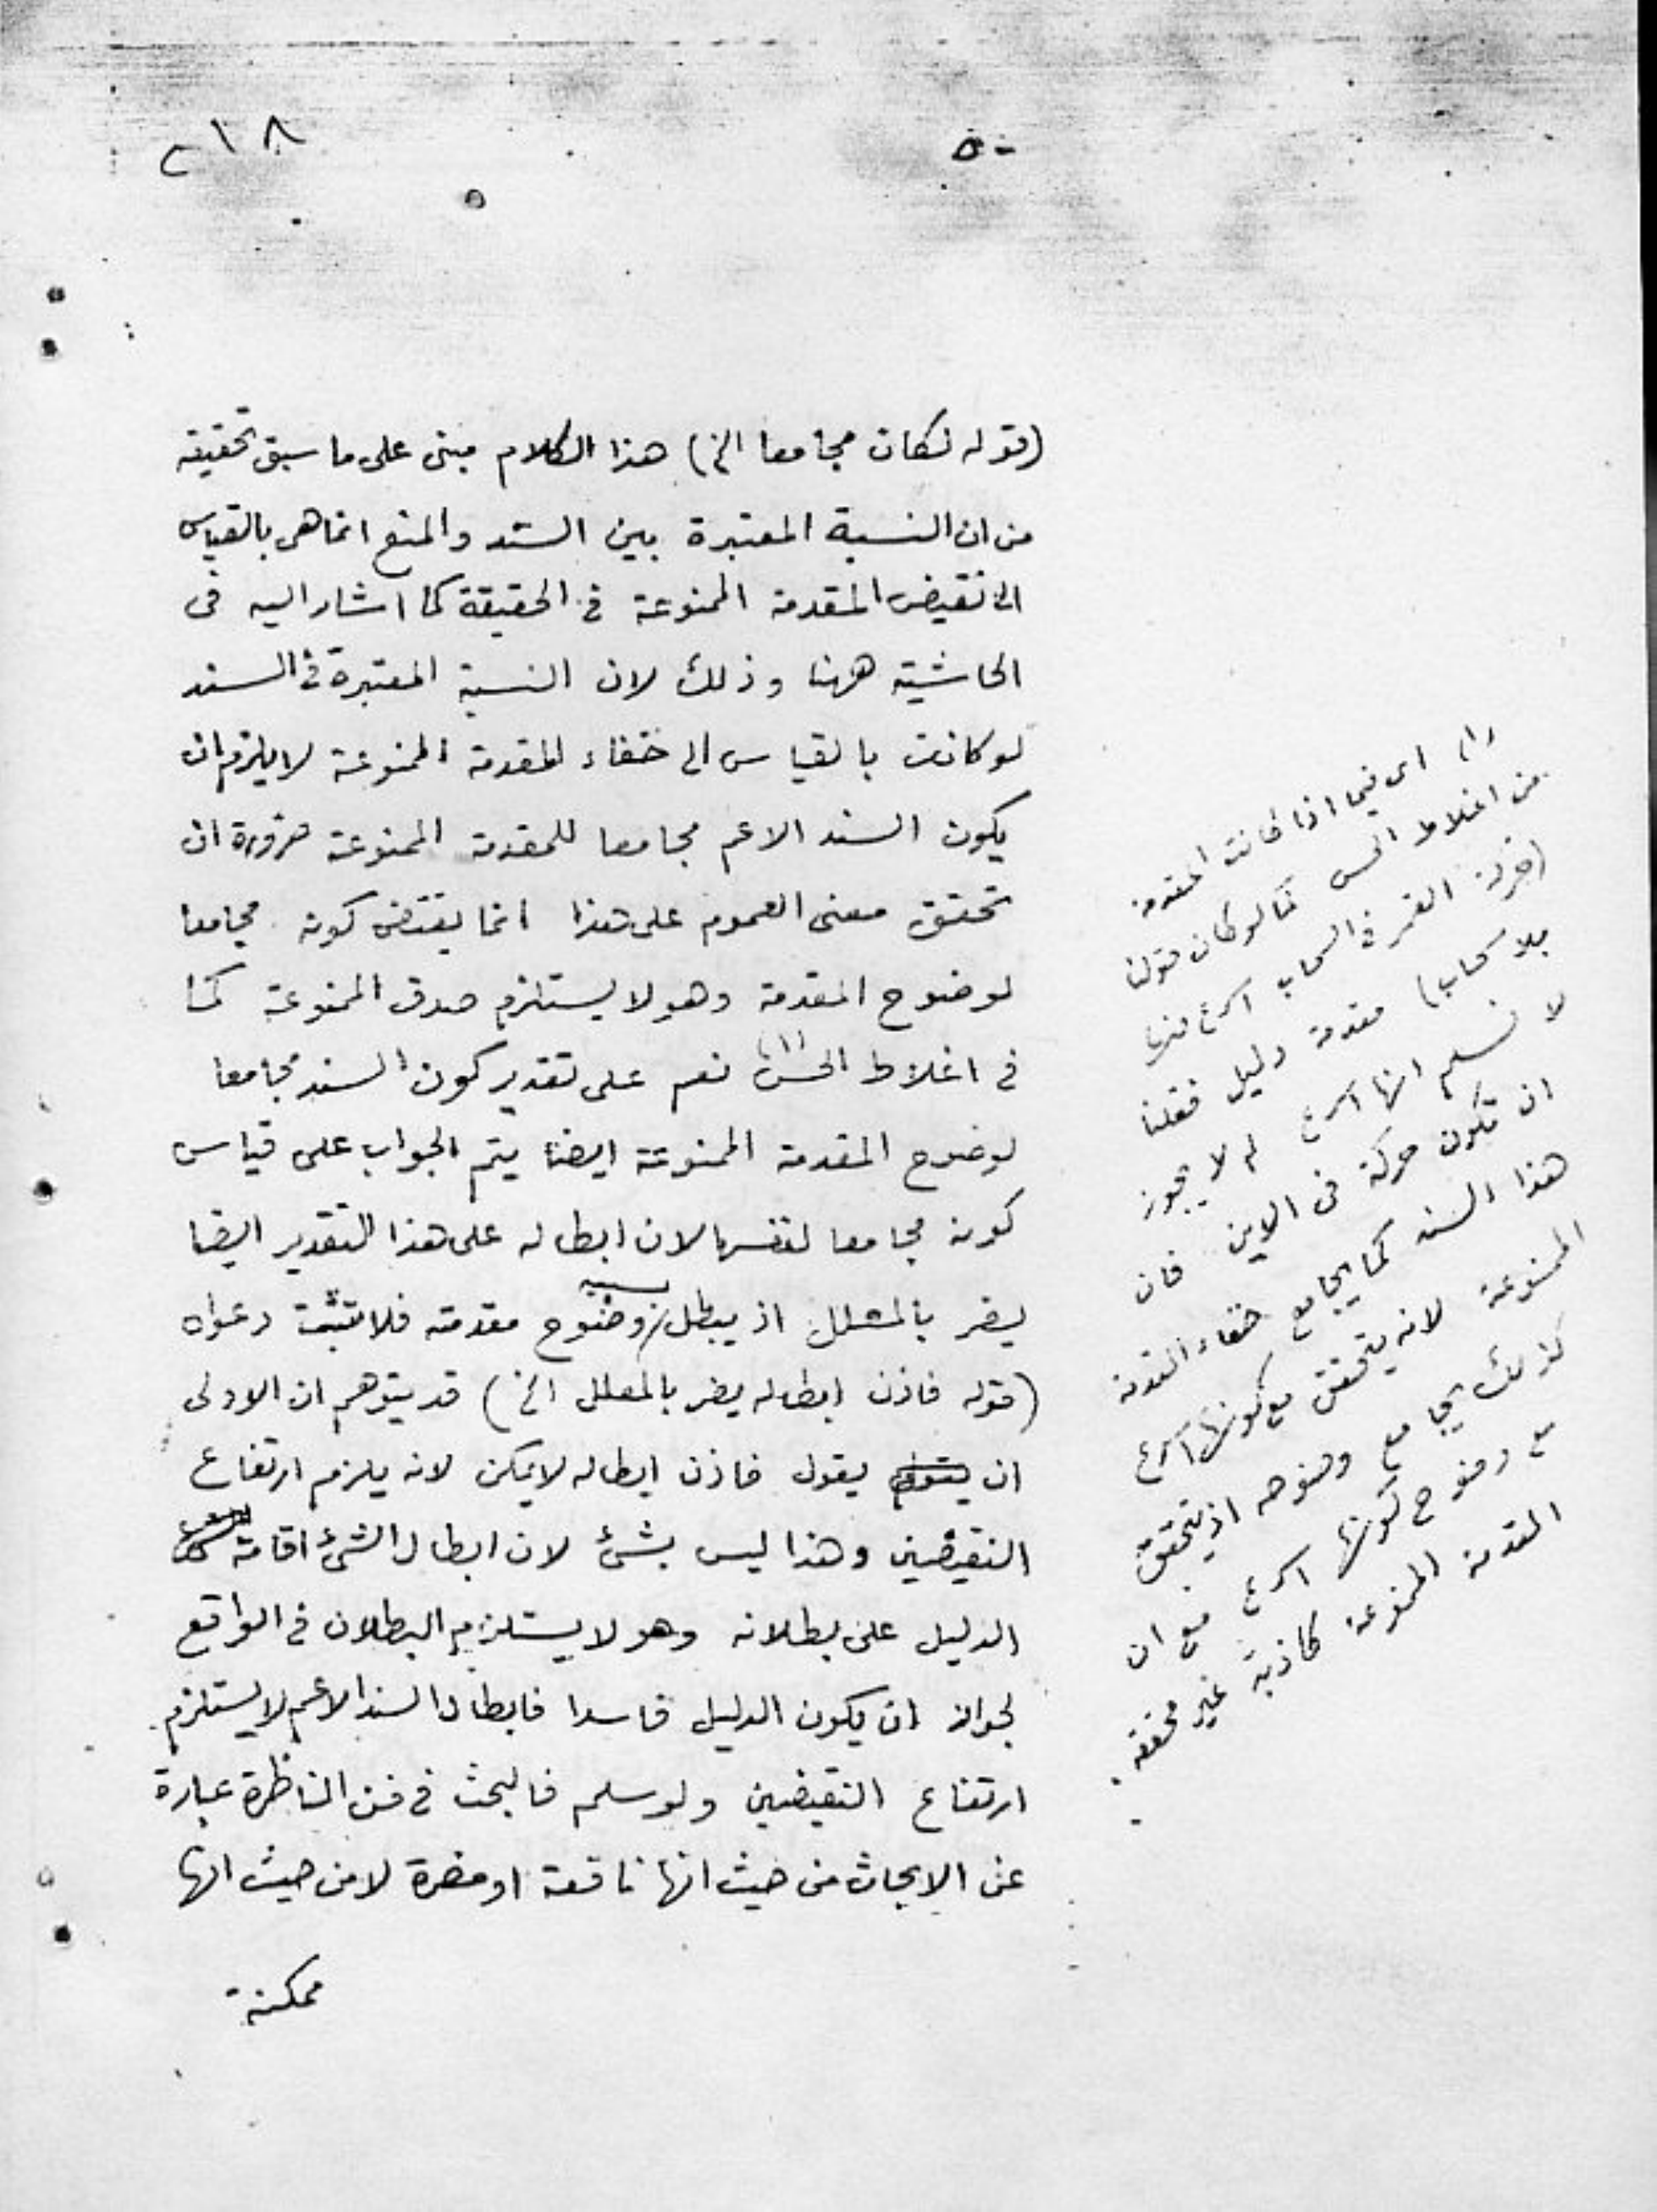 ٢١٨
٥٠
(قوله لكان مجامعا الخ) هذا الكلام مبنى على ما سبق تحقيقه
من ان النسبة المعتبرة بين السند والمنع انما هى بالقياس
الى نقيض المقدمة الممنوعة فى الحقيقة كما اشار اليه فى
الحاشية ههنا وذلك لان النسبة المعتبرة فى السند
لو كانت بالقياس الى خفاء المقدمة الممنوعة لا يلزم ان
يكون السند الاعم مجامعا للمقدمة الممنوعة ضرورة ان
تحقق معنى العموم على هذا انما يقتضى كونه مجامعا
لوضوح المقدمة وهو لا يستلزم صدق الممنوعة كما
فى اغلاط الحس (١) نعم على تقدير كون السند مجامعا
لوضوح المقدمة الممنوعة ايضا يتم الجواب على قياس
كونه مجامعا لنفسها لان ابطاله على هذا التقدير ايضا
يضر بالمعلل اذ يبطل وضوح مقدمته فلا تثبت دعواه
(قوله فاذن ابطاله يضر بالمعلل الخ) قد يتوهم ان الاولى
ان يقول فاذن ابطاله لا يمكن لانه يلزم ارتفاع
النقيضين وهذا ليس بشئ لان ابطال الشئ اقامة
الدليل على بطلانه وهو لا يستلزم البطلان فى الواقع
لجواز ان يكون الدليل فاسدا فابطال السند الاعم لا يستلزم
ارتفاع النقيضين ولو سلم فالبحث فى فن المناظرة عبارة
عن الابحاث من حيث انها نافعة او مضرة لا من حيث انها
ممكنة
(١) اى فيما اذا كانت المقدمة
من اغلاط الحس كما لو كان قولنا
(حركة القمر فى السحاب اسرع منها
بلا سحاب) مقدمة دليل فقلنا
لا نسلم انها اسرع لم لا يجوز
ان تكون حركة فى الاين فان
هذا السند كما يجامع خفاء المقدمة
الممنوعة لانه يتحقق مع كونها اسرع
كذلك يجامع وضوحه اذ يتحقق
مع وضوح كونها اسرع مع ان
المقدمة الممنوعة كاذبة غير محققة.